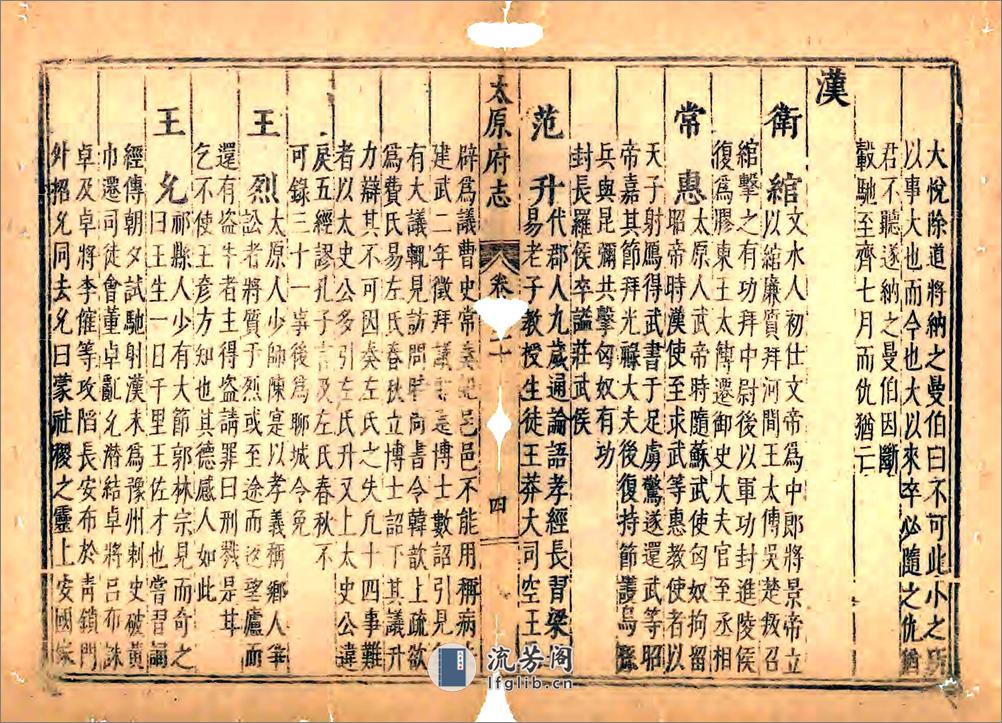 大悅除道將納之曼伯曰不可此小之所
以事大也而今也大以來卒必隨之仇猶
君不聽遂納之曼伯因斷
轂馳至齊七月而仇猶亡
漢
衛綰文水人初仕文帝為中郎將景帝立
以綰廉質拜河間王太傅吳楚叛召
綰擊之有功拜中尉後以軍功封進陵侯
復為膠東王太傅遷御史大夫官至丞相
常惠太原人武帝時隨蘇武使匈奴拘留
昭帝時漢使至求武等惠教使者以
天子射鴈得武書于足虜驚遂還武等昭
帝嘉其節拜光祿大夫後復持節護烏孫
兵與昆彌共擊匈奴有功
封長羅侯卒謚莊武侯
范升代郡人九歲通論語孝經長習梁
易老子教授生徒王莽大司空王
太原府志
卷 十
四
辟為議曹史常 邑不能用稱病
建武二年徵拜議 博士數詔引見
有大議輒見訪問時尚書令韓歆上疏欲
為費氏易左氏春秋立博士詔下其議升
力辯其不可因奏左氏之失凡十四事難
者以太史公多引左氏升又上太史公違
戾五經謬孔子言及左氏春秋不
可錄三十一事後為聊城令免
王烈太原人少師陳寔以孝義稱鄉人爭
訟者將質于烈或至途而返望廬而
還有盜牛者主得盜請罪曰刑戮是甘
乞不使王彥方知也其德感人如此
王允祁縣人少有大節郭林宗見而奇之
曰王生一日千里王佐才也嘗習誦
經傳朝夕試馳射漢末為豫州刺史破黃
巾遷司徒會董卓亂允潛結卓將呂布誅
卓及卓將李傕等攻陷長安布於青鎖門
外招允同去允曰蒙社稷之靈上安國家
流芳阁
lfglib.cn